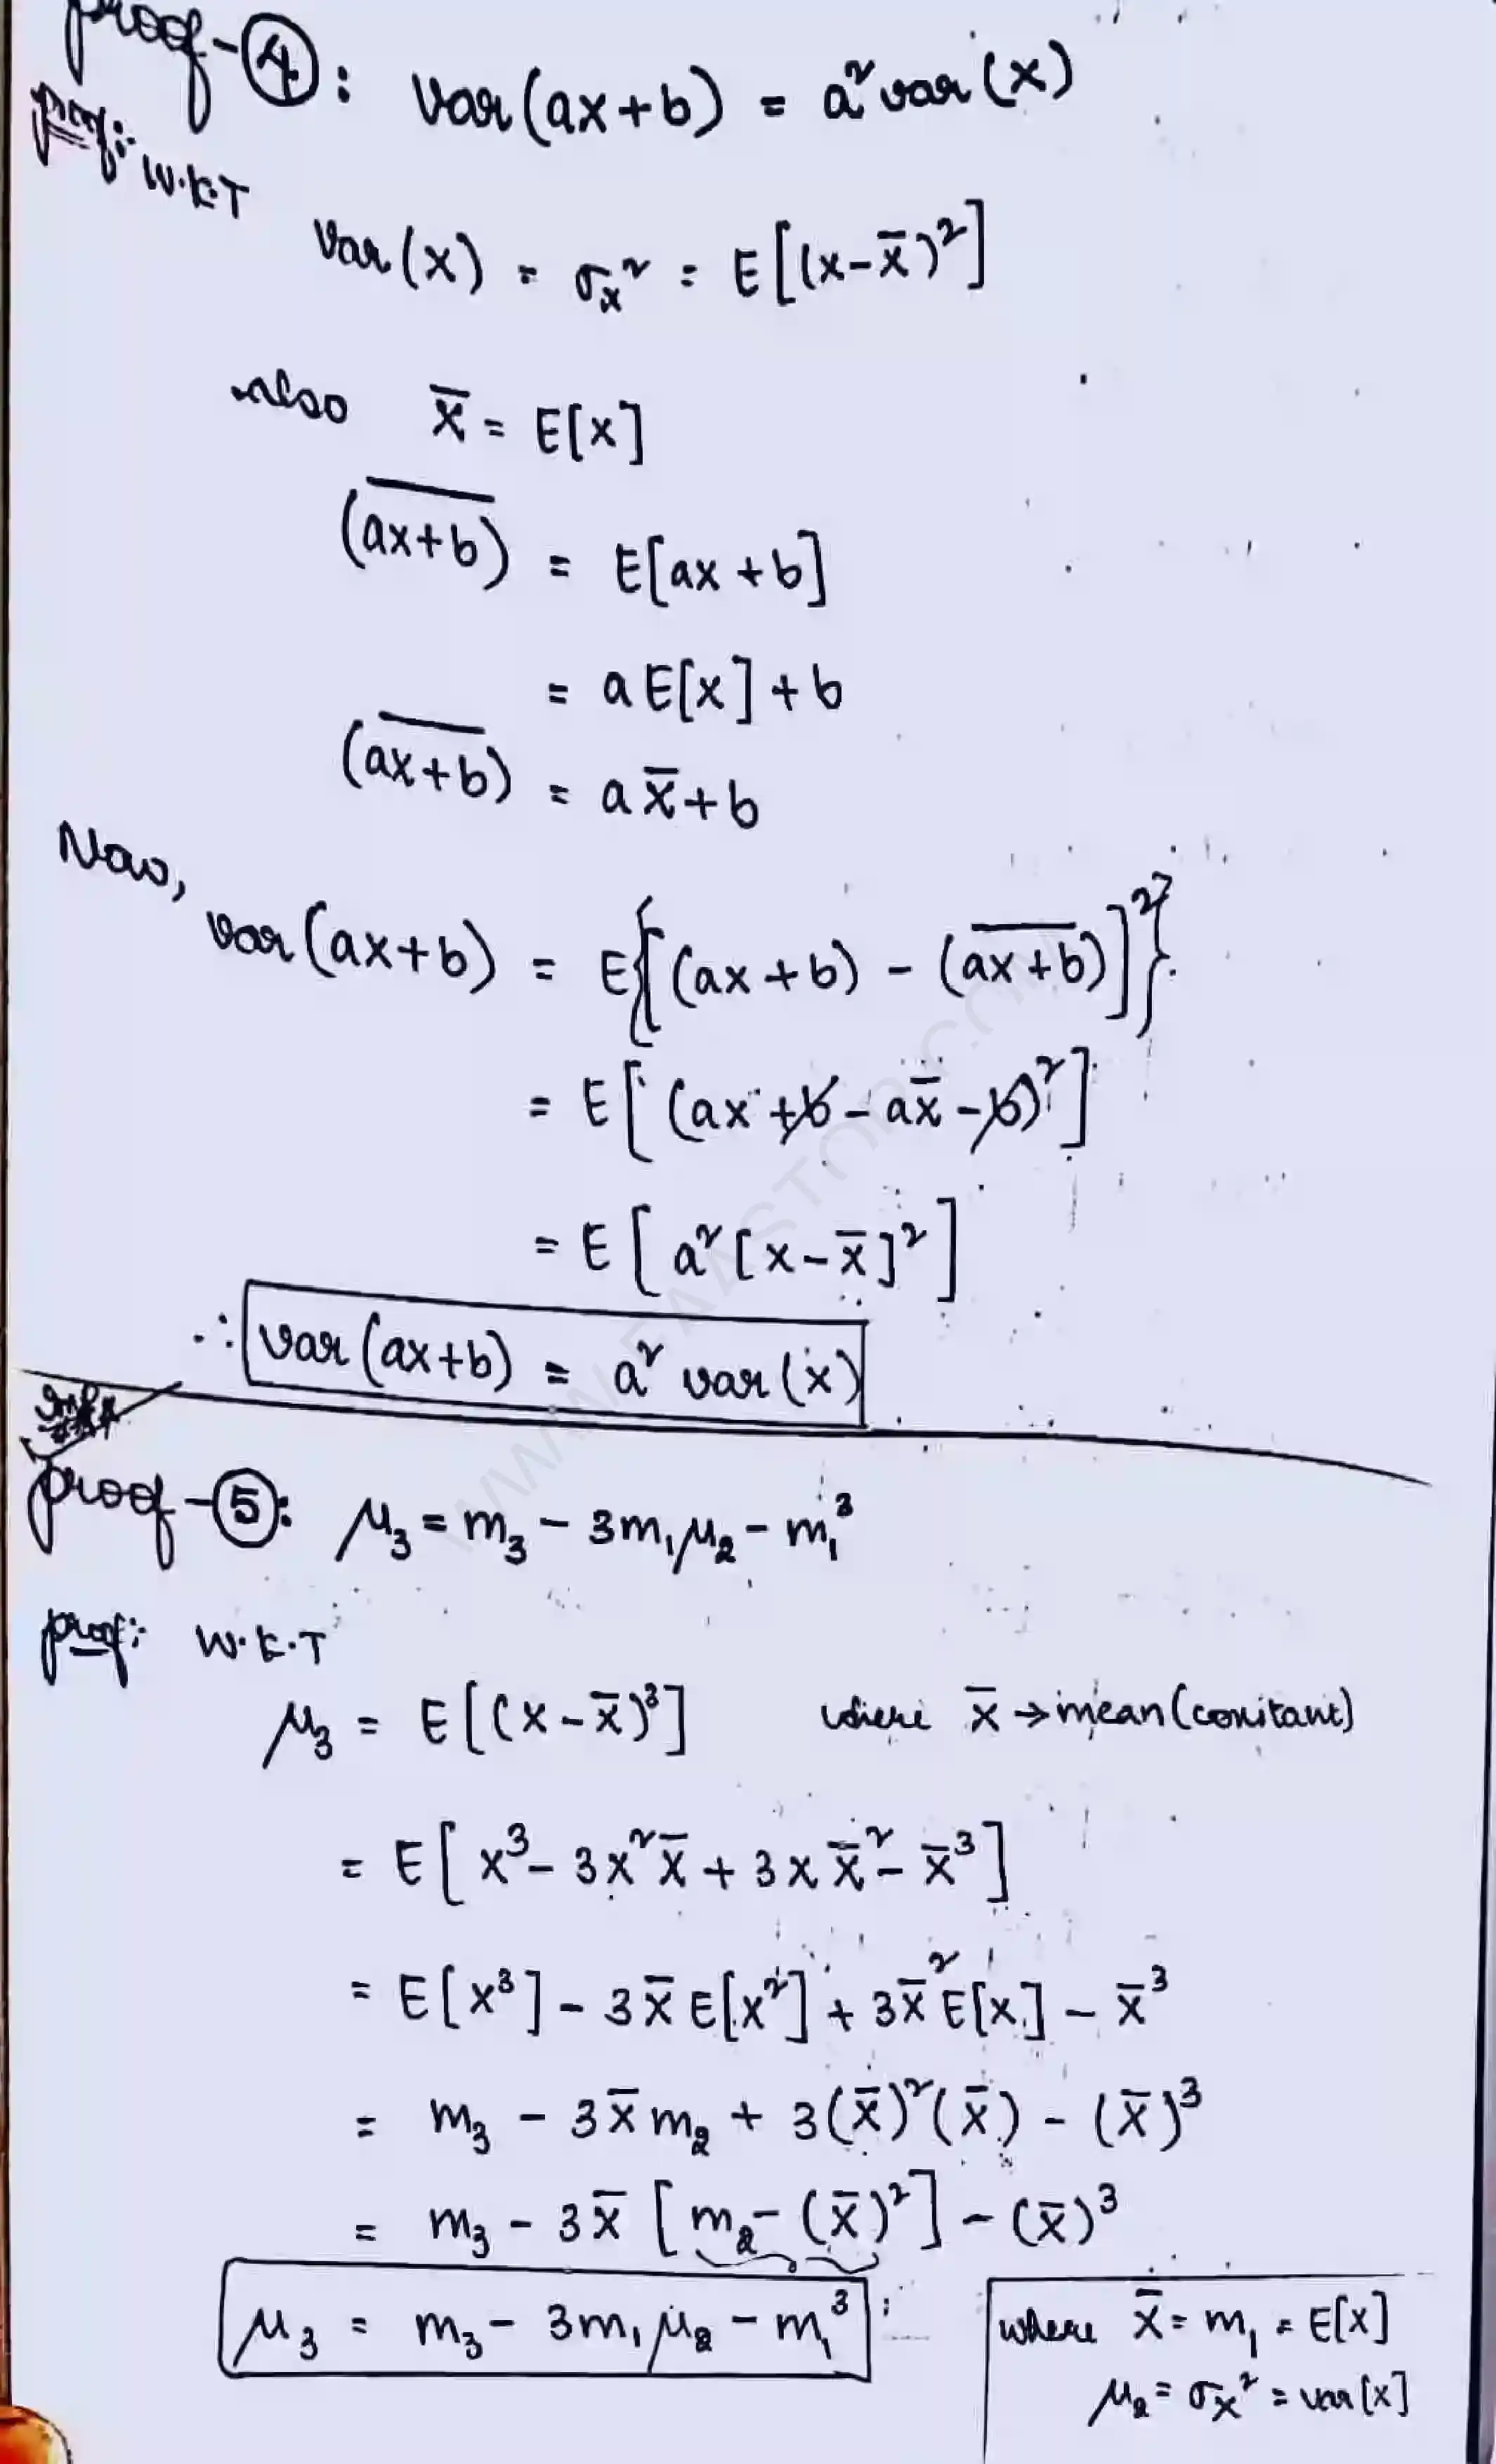 proof-④: var(ax+b) = a² var(x)
proof:- W.K.T
Var(x) = σₓ² = E[(x-x̅)²]
also x̅ = E[x]
(a̅x̅+̅b̅) = E[ax+b]
= a E[x]+b
(a̅x̅+̅b̅) = a x̅+b
Now,
var(ax+b) = E{[(ax+b) - (a̅x̅+̅b̅)]²}
= E[(ax+b-ax̅-b)²]
= E[a²[x-x̅]²]
∴ var(ax+b) = a² var(x)
proof-⑤: μ₃ = m₃ - 3m₁μ₂ - m₁³
proof: W.K.T
μ₃ = E[(x-x̅)³] where x̅ → mean(constant)
= E[x³- 3x²x̅ + 3x x̅² - x̅³]
= E[x³] - 3x̅ E[x²] + 3x̅² E[x] - x̅³
= m₃ - 3x̅ m₂ + 3(x̅)²(x̅) - (x̅)³
= m₃ - 3x̅ [m₂-(x̅)²] - (x̅)³
μ₃ = m₃ - 3m₁μ₂ - m₁³
where x̅ = m₁ = E[x]
μ₂ = σₓ² = var[x]